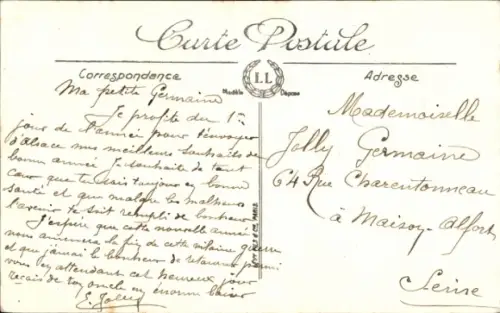 Carte Postale
Correspondance
LL
Modèle Déposé
Adresse
Ma petite Germaine
Je profite du 1er
jour de l'année pour t'envoyer
d'Alsace mes meilleurs souhaits de
bonne année. Je souhaite de tout
cœur que tu sois toujours en bonne
santé et que malgré les malheurs
l'avenir te soit rempli de bonheur
J'espère que cette nouvelle année
nous amènera la fin de cette vilaine guerre
et que j'aurai le bonheur de retourner parmi
vous en attendant cet heureux jour
reçois de ton oncle un énorme baiser
E. Jolly
LEVY FILS & Cie, PARIS
Mademoiselle
Jolly Germaine
64 Rue Charentonneau
à Maisons-Alfort
Seine